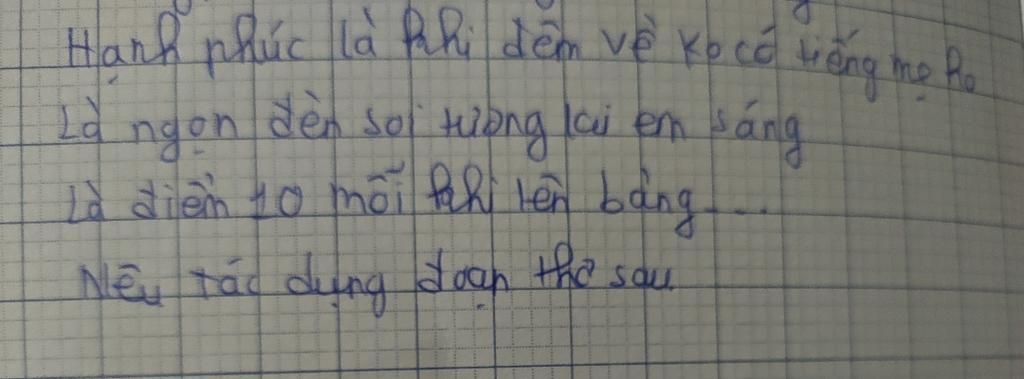 Hạnh phúc là khi đêm về ko có tiếng mẹ ho
Là ngọn đèn soi tương lai em sáng
Là điểm 10 mỗi khi lên bảng...
Nêu tác dụng đoạn thơ sau